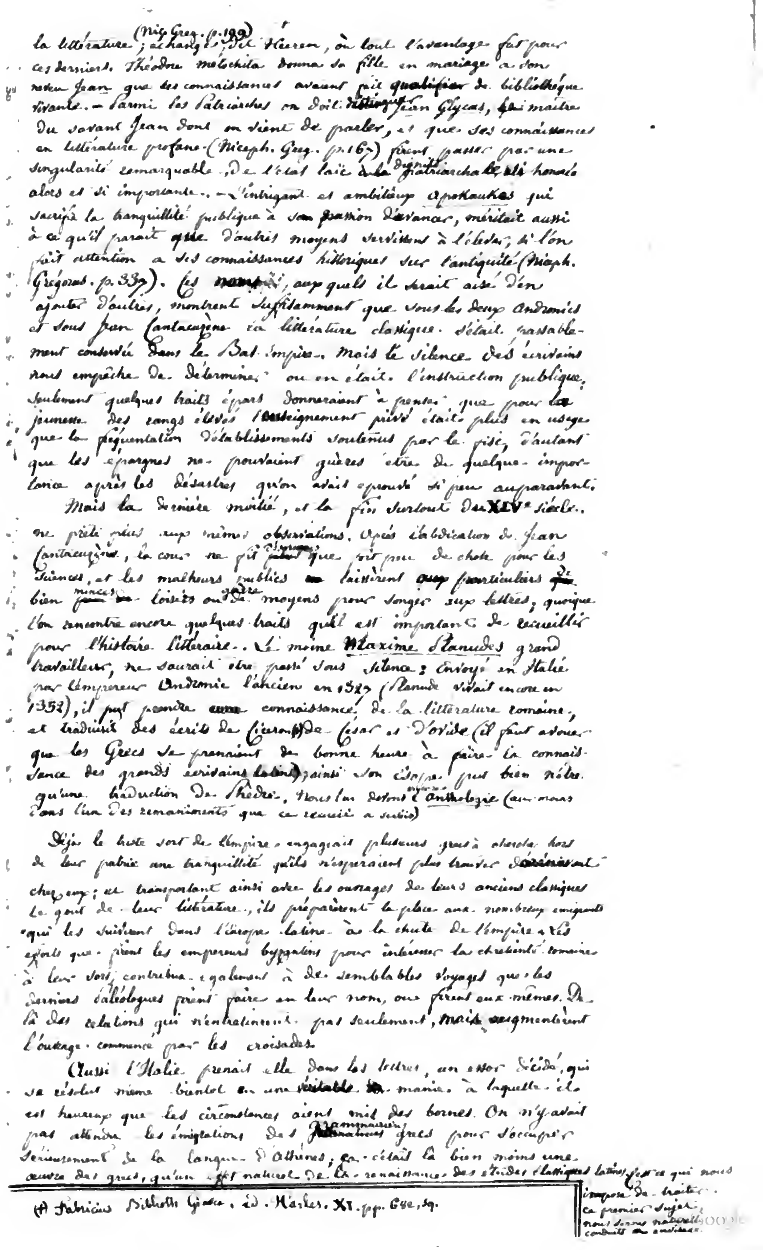 (Nic. Greg. p. 199)
la littérature; échange, dit Heeren, où tout l'avantage fut pour
ces derniers. Théodore métochita donna sa fille en mariage à son
neveu Jean que ses connaissances avaient fait qualifier de bibliothèque
vivante. - Parmi les Patriarches on doit distinguer Jean Glycas, maitre
du savant Jean dont on vient de parler, et que ses connaissances
en littérature profane (Niceph. Greg. p. 167) firent passer par une
singularité remarquable, de l'état laïc à la dignité patriarchale, si honorée
alors et si importante. - L'intrigant et ambitieux Apokaukes qui
sacrifia la tranquillité publique à son passion d'avancer, méritait aussi
à ce qu'il parait que d'autres moyens servissent à l'élever, si l'on
fait attention a ses connaissances historiques sur l'antiquité (Niceph.
Grégoras. p. 339). Ces noms, aux quels il serait aisé d'en
ajouter d'autres, montrent suffisamment que sous les deux Andronics
et sous Jean Cantacuzène la littérature classique s'était passable-
ment conservée dans le Bas-Empire. Mais le silence des écrivains
nous empêche de déterminer ou en était l'instruction publique,
seulement quelques traits épars donneraient à penser que pour la
jeunesse des rangs élevés l'enseignement privé était plus en usage
que la fréquentation d'établissements soutenus par le fisc, d'autant
que les épargnes ne pouvaient guères être de quelque impor-
tance après les désastres qu'on avait éprouvé si peu auparavant.
Mais la dernière moitié, et la fin surtout du XIVe siècle,
ne prête plus aux mêmes observations. Après l'abdication de Jean
Cantacuzène, la cour ne fit que fort peu de chose pour les
sciences, et les malheurs publics laissèrent aux particuliers
bien minces loisirs ou de moyens pour songer aux lettres, quoique
l'on rencontre encore quelques traits qu'il est important de recueillir
pour l'histoire littéraire. Le moine Maxime Planudes grand
travailleur, ne saurait être passé sous silence: Envoyé en Italie
par l'empereur Andronic l'ancien en 1327 (Planude vivait encore en
1352), il put prendre connaissance de la littérature romaine,
et traduisit des écrits de Ciceron, de Cesar et d'Ovide (il faut avouer
que les Grecs se prenaient de bonne heure à faire la connais-
sance des grands écrivains latins), ainsi son Esope put bien n'être
qu'une traduction de Phèdre. Nous lui devons l'Anthologie (au moins
dans l'un des remaniments que ce recueil a subis)
Déjà le triste sort de l'empire engageait plusieurs grecs à chercher hors
de leur patrie une tranquillité qu'ils n'esperaient plus trouver dorénavant
chez eux; et transportant ainsi avec les ouvrages de leurs anciens classiques
le gout de leur littérature, ils préparèrent la place aux nombreux émigrants
qui les suivirent dans l'Europe latine à la chute de l'empire. Les
efforts que firent les empereurs byzantins pour intéresser la chrétienté romaine
à leur sort, contribua également à de semblables voyages que les
derniers Paléologues firent faire en leur nom, ou firent eux-mêmes. De
là des relations qui n'entretinrent pas seulement, mais augmentèrent
l'ouvrage commencé par les croisades.
Aussi l'Italie prenait elle dans les lettres, un essor décidé, qui
se résolut même bientot en une véritable manie à laquelle il
est heureux que les circonstances aient mis des bornes. On n'y avait
pas attendu les émigrations des grammairiens grecs pour s'occuper
sérieusement de la langue d'Athènes; car c'était là bien moins une
œuvre des grecs, qu'un effet naturel de la renaissance des études classiques latines; c'est ce qui nous
impose de traiter
ce premier sujet,
nous serons naturell.
conduits au
(A Fabricius Biblioth Graeca. éd. Harles. XI. pp. 682, sq.